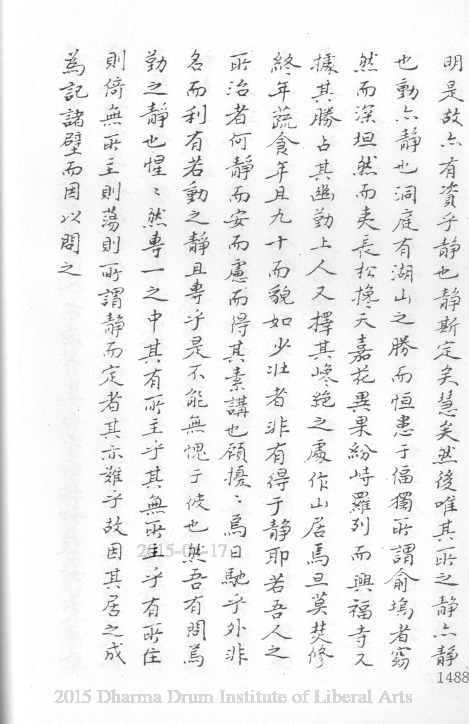 明是故亦有資乎靜也靜斯定矣慧矣然後唯其所之靜亦靜
也動亦靜也洞庭有湖山之勝而恒患于偪獨所謂俞塢者窈
然而深坦然而夷長松攙天嘉花異果紛峙羅列而興福寺又
據其勝占其幽勤上人又擇其峰絕之處作山居焉旦莫焚修
終年蔬食年且九十而貌如少壯者非有得于靜耶若吾人之
所治者何靜而安而慮而得其素講也顧擾〻焉日馳乎外非
名而利有若動之靜且專乎是不能無愧于彼也然吾有問焉
勤之靜也惺〻然專一之中其有所主乎其無所主乎有所住
則倚無所主則蕩則所謂靜而定者其亦難乎故因其居之成
為記諸壁而因以問之
2015-04-17
1488
2015 Dharma Drum Institute of Liberal Arts